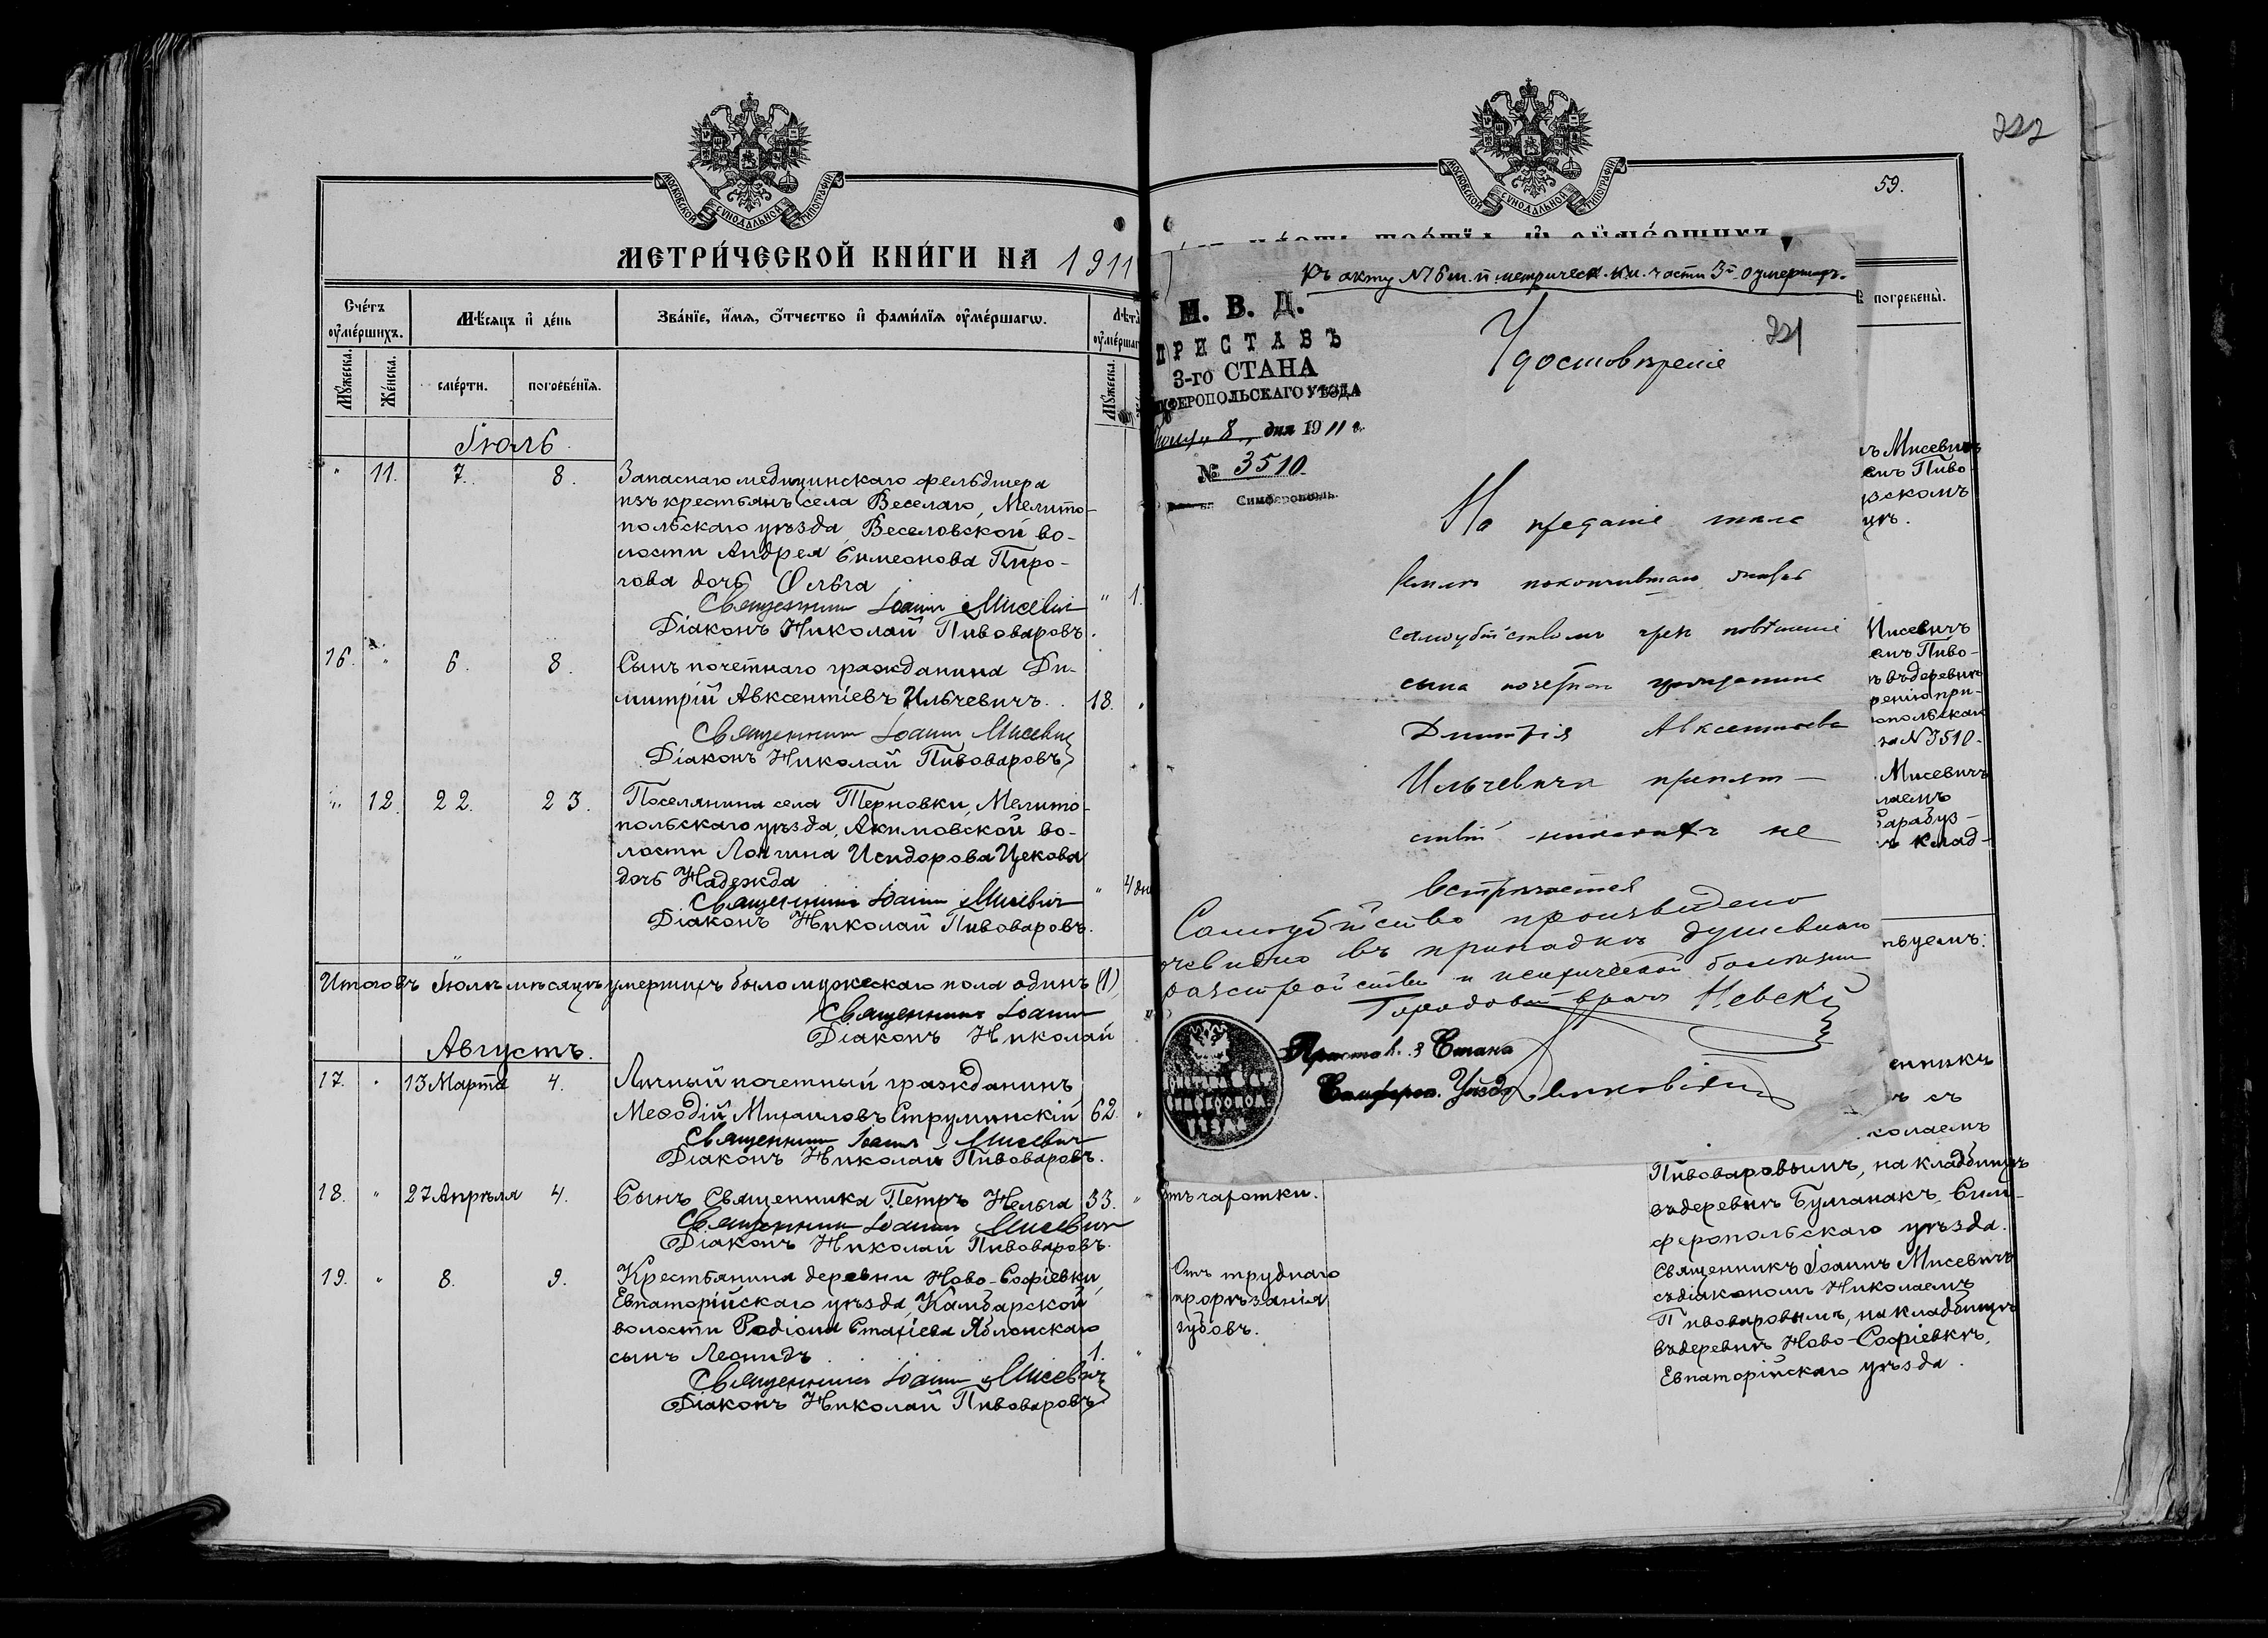 МОСКОВСКОЙ СѴНОДАЛЬНОЙ ТИПОГРАФІИ
МЕТРИ́ЧЕСКОЙ КНИ́ГИ НА 1911
Счéтъ оу҆мéршихъ.
Мѣ́сяцъ и҆ дéнь
Звáнїе, и҆́мѧ, ѻ҆́тчество и҆ фамѝлїѧ оу҆мéршагѡ.
Лѣтà оу҆мéршаг
Мꙋ́жеска.
Жéнска.
смéрти.
погребéнїѧ.
Мꙋ́жеска.
Іюль.
" 11. 7. 8. Запаснаго медицинскаго фельдшера
изъ крестьянъ села Веселаго, Мелито-
польскаго уѣзда, Веселовской во-
лости Андрея Симеонова Пиро-
гова дочь Ольга " 1.
Священникъ Іоаннъ Мисевичъ
Діаконъ Николай Пивоваровъ.
16. " 6. 8. Сынъ почетнаго гражданина Ди-
митрій Авксентіевъ Ильчевичъ. 18. "
Священникъ Іоаннъ Мисевичъ
Діаконъ Николай Пивоваровъ
" 12. 22. 23. Поселянина села Терновки, Мелито-
польскаго уѣзда, Акимовской во-
лости Логгина Исидорова Цекова
дочь Надежда " 4 дн
Священникъ Іоаннъ Мисевичъ
Діаконъ Николай Пивоваровъ.
Итого въ Іюлѣ мѣсяцѣ умершихъ было мужескаго пола одинъ (1),
Священникъ Іоаннъ
Діаконъ Николай
Августъ.
17. " 13 Марта 4. Личный почетный гражданинъ
Меѳодій Михаиловъ Струминскій 62. "
Священникъ Іоаннъ Мисевичъ
Діаконъ Николай Пивоваровъ.
18. " 27 Апрѣля 4. Сынъ Священника Петръ Нельга 33. "
Священникъ Іоаннъ Мисевичъ
Діаконъ Николай Пивоваровъ.
19. " 8. 9. Крестьянина деревни Ново-Софіевки,
Евпаторійскаго уѣзда, Камбарской
волости Родіона Стахіева Яблонскаго
сынъ Леонидъ 1. "
Священникъ Іоаннъ Мисевичъ
Діаконъ Николай Пивоваровъ
322
МОСКОВСКОЙ СѴНОДАЛЬНОЙ ТИПОГРАФІИ
59.
погребены̀.
Къ акту №16 м. п. метрическ. кн. части 3й о умершихъ.
М. В. Д.
ПРИСТАВЪ
3-го СТАНА
ФЕРОПОЛЬСКАГО УѢЗДА
8 дня 1911 г.
№ 3510.
Симферополь.
321
Удостовѣреніе
На преданіе тѣла
землѣ покончившаго жизнь
самоубійствомъ чрез повѣшеніе
сына почетнаго гражданина
Димитрія Авксентьева
Ильчевича препят-
ствій никакихъ не
встрѣчается
Самоубійство произведено
очевидно въ припадкѣ душевнаго
разстройства и психической болѣзни
Городовой врачъ Невскій
Пристав. 3 Стана
Симфероп. Уѣзда
ъ Мисевичъ
емъ Пиво
скомъ
Мисевичъ
емъ Пиво-
ъ въ деревнѣ
ренію при-
опольскаго
за N 3510.
Мисевичъ
лаемъ
Сарабуз-
ъ клад-
твуемъ:
енникъ
ъ съ
колаемъ
Пивоваровымъ, на кладбищѣ
въ деревнѣ Булганакъ Сим-
феропольскаго уѣзда.
отъ чахотки.
Отъ труднаго
прорѣзанія
зубовъ.
Священникъ Іоаннъ Мисевичъ
съ діакономъ Николаемъ
Пивоваровымъ, на кладбищѣ
въ деревнѣ Ново-Софіевкѣ,
Евпаторійскаго уѣзда.